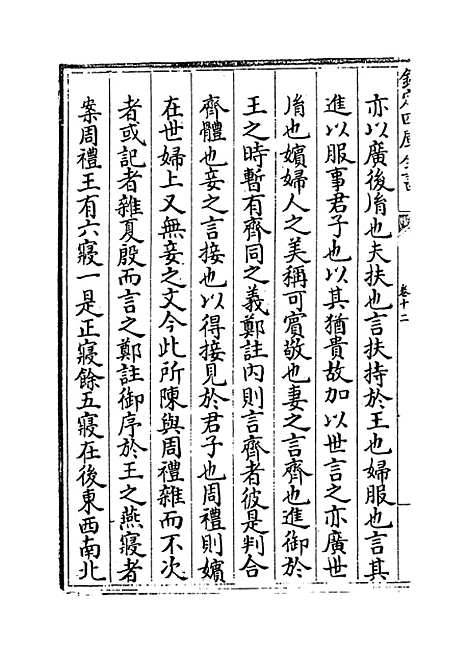 欽定四庫全書
卷十二
亦以廣後脩也夫扶也言扶持於王也婦服也言其
進以服事君子也以其猶貴故加以世言之亦廣世
脩也嬪婦人之美稱可賓敬也妻之言齊也進御於
王之時暫有齊同之義鄭註內則言齊者彼是判合
齊體也妾之言接也以得接見於君子也周禮則嬪
在世婦上又無妾之文今此所陳與周禮雜而不次
者或記者雜夏殷而言之鄭註御序於王之燕寢者
案周禮王有六寢一是正寢餘五寢在後東西南北